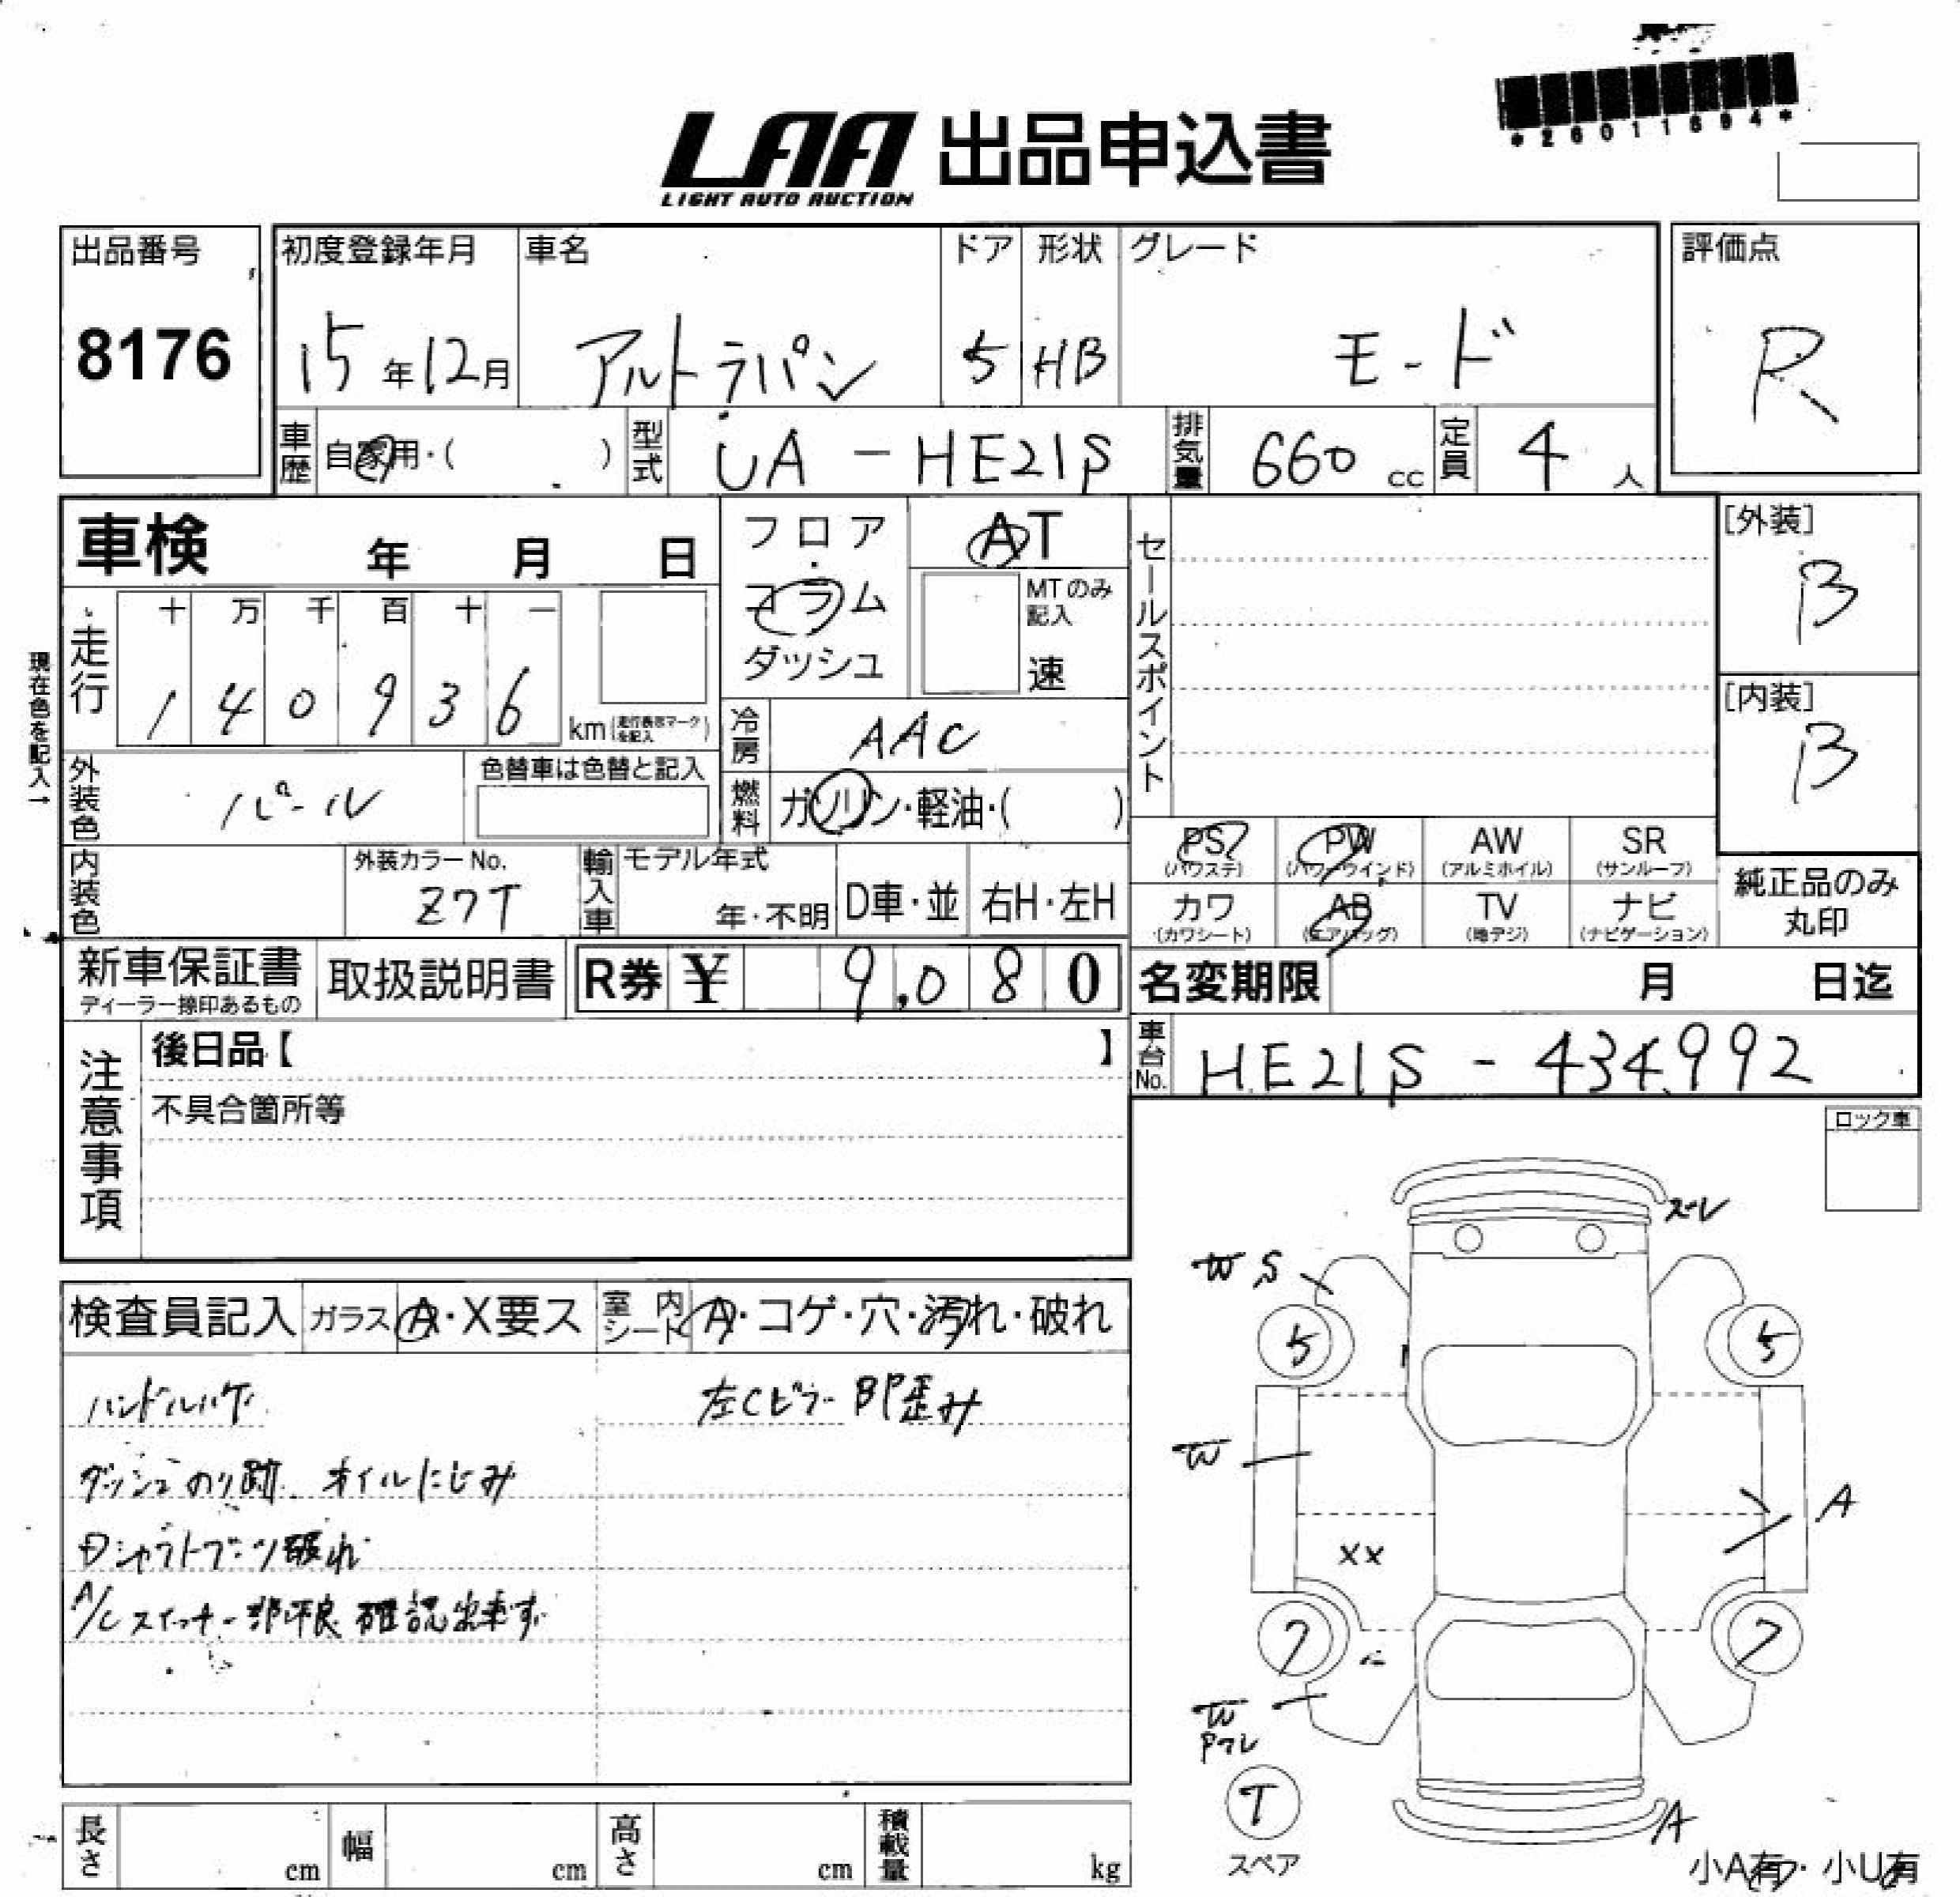 *26011894*
LAA 出品申込書
LIGHT AUTO AUCTION
出品番号 初度登録年月 車名 ドア 形状 グレード 評価点
8176 15年12月 アルトラパン 5 HB モード R
車歴 自家用・( ) 型式 UA-HE21S 排気量 660 cc 定員 4 人
車検 年 月 日 フロア・コラム ダッシュ AT セールスポイント [外装]
B
MTのみ記入
速
現在色を記入→
走行 十 万 千 百 十 一
1 4 0 9 3 6 km(走行表示マークを記入)
[内装]
B
冷房 AAC
外装色 パール 色替車は色替と記入 燃料 ガソリン・軽油・( )
PS PW AW SR
(パワステ) (パワーウインド) (アルミホイル) (サンルーフ)
内装色 外装カラーNo. Z7T 輸入車 モデル年式 年・不明 D車・並 右H・左H
カワ AB TV ナビ
(カワシート) (エアバッグ) (地デジ) (ナビゲーション)
純正品のみ
丸印
新車保証書 取扱説明書 R券 ¥ 9,080 名変期限 月 日迄
ディーラー捺印あるもの
車台No. HE21S-434992
注意事項 後日品【 】
不具合箇所等
ロック車
ズレ
W S
5 5
検査員記入 ガラス A・X要ス 室内シート A・コゲ・穴・汚れ・破れ
ハンドルハゲ 左Cピラー BP歪み
ダッシュのり跡 オイルにじみ
Dシャフトブーツ破れ
A/Cスイッチ一部不良 確認出来ず
W
A
XX
7 7
W
Pワレ
T
スペア
A
小A有・小U有
長さ cm 幅 cm 高さ cm 積載量 kg